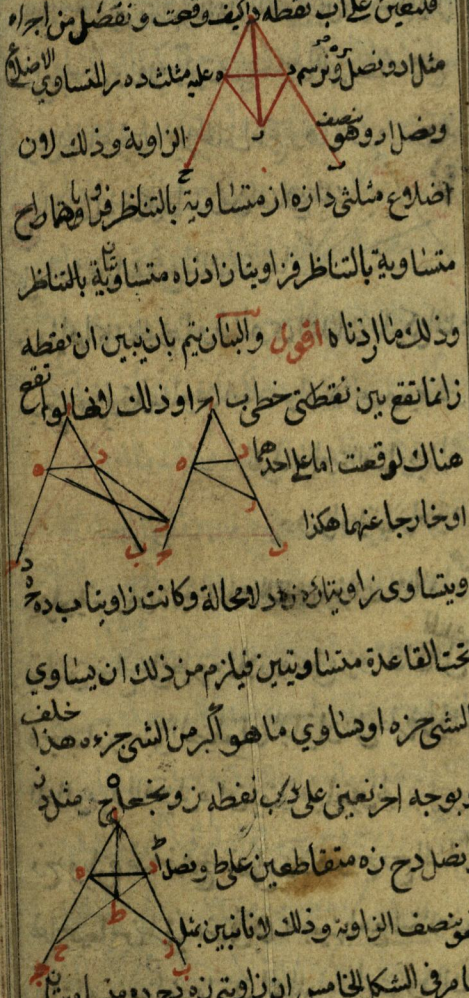 فلنعين على اب نقطه د كيف وقعت ونفصل من اج اه
مثل اد ونصل ده ونرسم عليه مثلث ده ز المتساوي الاضلاع
ونصل از وهو ينصف الزاوية وذلك لان
اضلاع مثلثى داز ه از متساوية بالتناظر
متساوية بالتناظر فزاويتا زاد زاه متساوية بالتناظر
وذلك ما اردناه اقول والبيان يتم بان يبين ان نقطه
ز انما تقع بين نقطتى خطى اب اج وذلك لانها لو لم تقع
هناك لوقعت اما على احدهما
او خارجا عنهما هكذا
ويتساوى زاويتا زده زه د لا محالة وكانت زاويتا ب ده
تحت القاعدة متساويتين فيلزم من ذلك ان يساوي
الشى جزه او يساوي ما هو اكبر من الشى جزءه هذا خلف
وبوجه اخر نعين على دب نقطه ز ونجعل ه ح مثل دز
ونصل دح زه متقاطعين على ط ونصل اط
فهو ينصف الزاوية وذلك لانا نبين بمثل
ما مر فى الشكل الخامس ان زاويتى